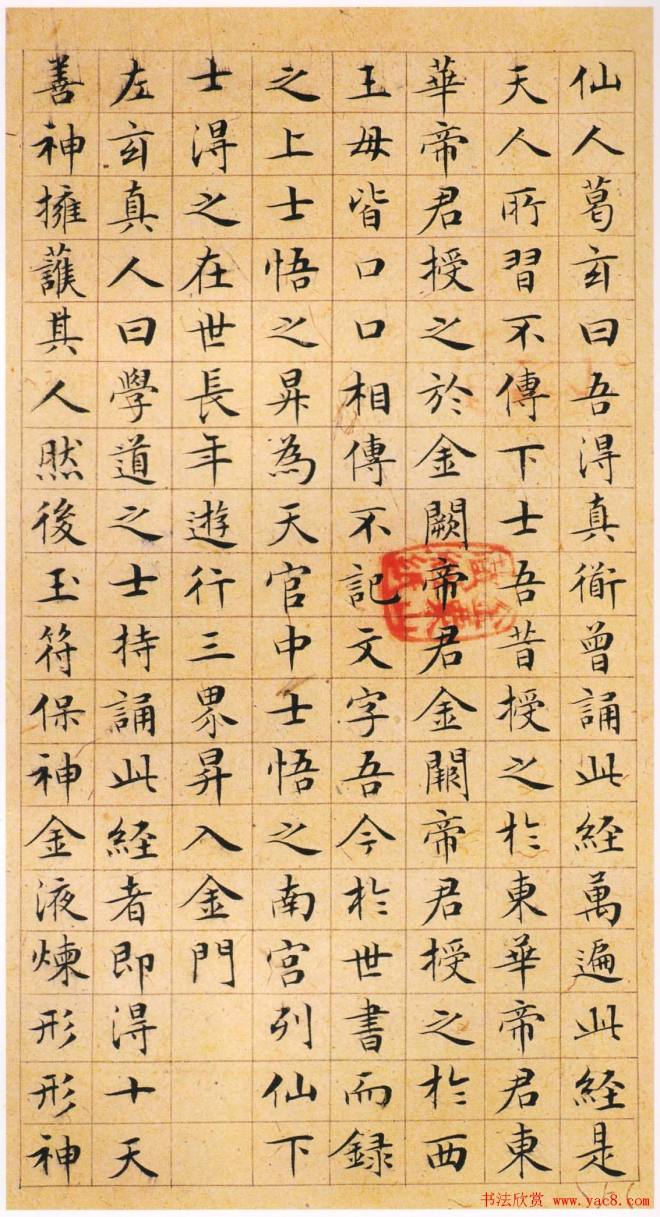 仙人葛玄曰吾得真衜曾誦此経萬遍此経是
天人所習不傳下士吾昔授之扵東華帝君東
華帝君授之於金闕帝君金闕帝君授之扵西
王母皆口口相傳不記文字吾今扵世書而録
之上士悟之昇為天官中士悟之南宮列仙下
士得之在世長年遊行三界昇入金門
左玄真人曰學道之士持誦此経者即得十天
善神擁護其人然後玉符保神金液煉形形神
书法欣赏 www.yac8.com